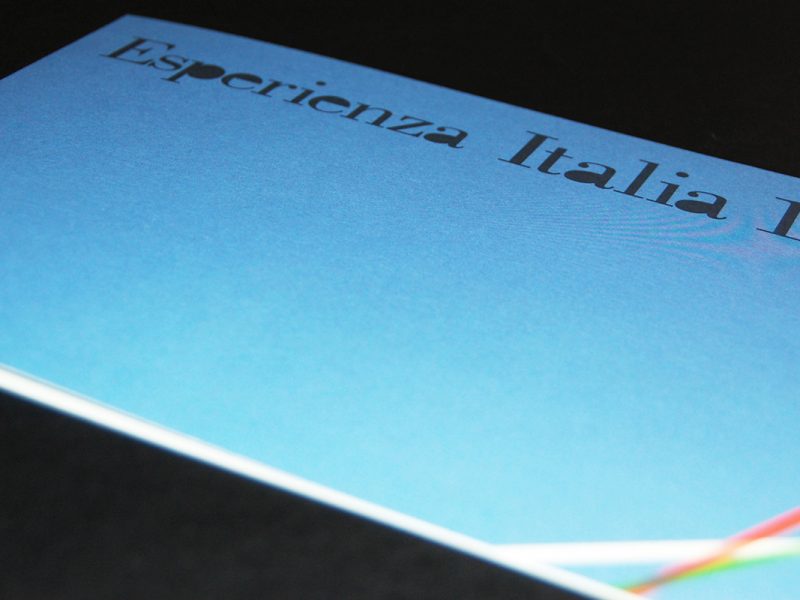 Esperienza Italia